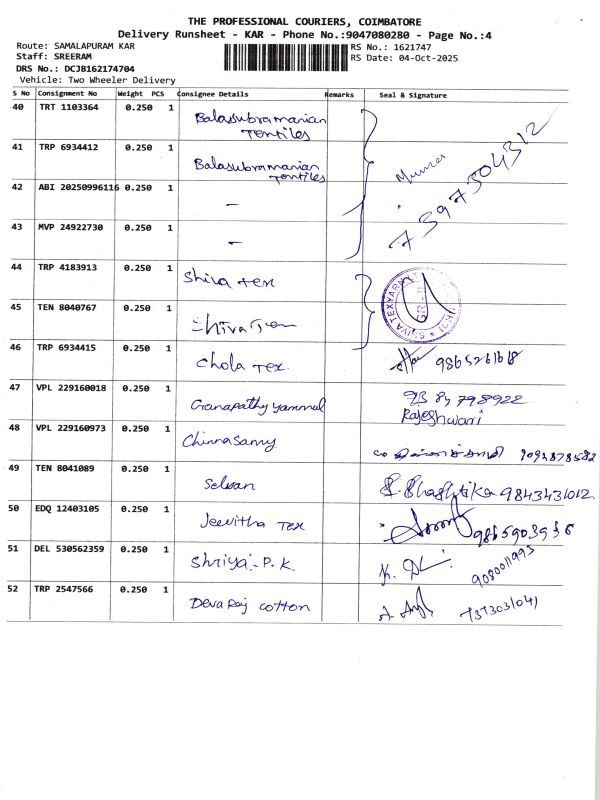 THE PROFESSIONAL COURIERS, COIMBATORE
Delivery Runsheet - KAR - Phone No.:9047080280 - Page No.:4
Route: SAMALAPURAM KAR
RS No.: 1621747
Staff: SREERAM
RS Date: 04-Oct-2025
DRS No.: DCJB162174704
Vehicle: Two Wheeler Delivery
S No Consignment No Weight PCS Consignee Details Remarks Seal & Signature
40 TRT 1103364 0.250 1 Balasubramanian Textiles
41 TRP 6934412 0.250 1 Balasubramanian Textiles
42 ABI 20250996116 0.250 1 -
7597504312
43 MVP 24922730 0.250 1 -
44 TRP 4183913 0.250 1 Shiva Tex
45 TEN 8040767 0.250 1 Shiva Tex
46 TRP 6934415 0.250 1 Chola Tex. 9865261618
47 VPL 229160018 0.250 1 Ganapathy 93 85 798922
Rajeshwari
48 VPL 229160973 0.250 1 Chinnasamy
49 TEN 8041089 0.250 1 Selvan 9843431012
50 EDQ 12403105 0.250 1 Jeevitha Tex 9865903936
51 DEL 530562359 0.250 1 Shriya - P. K. 9080011993
52 TRP 2547566 0.250 1 Devaraj cotton 7373031041